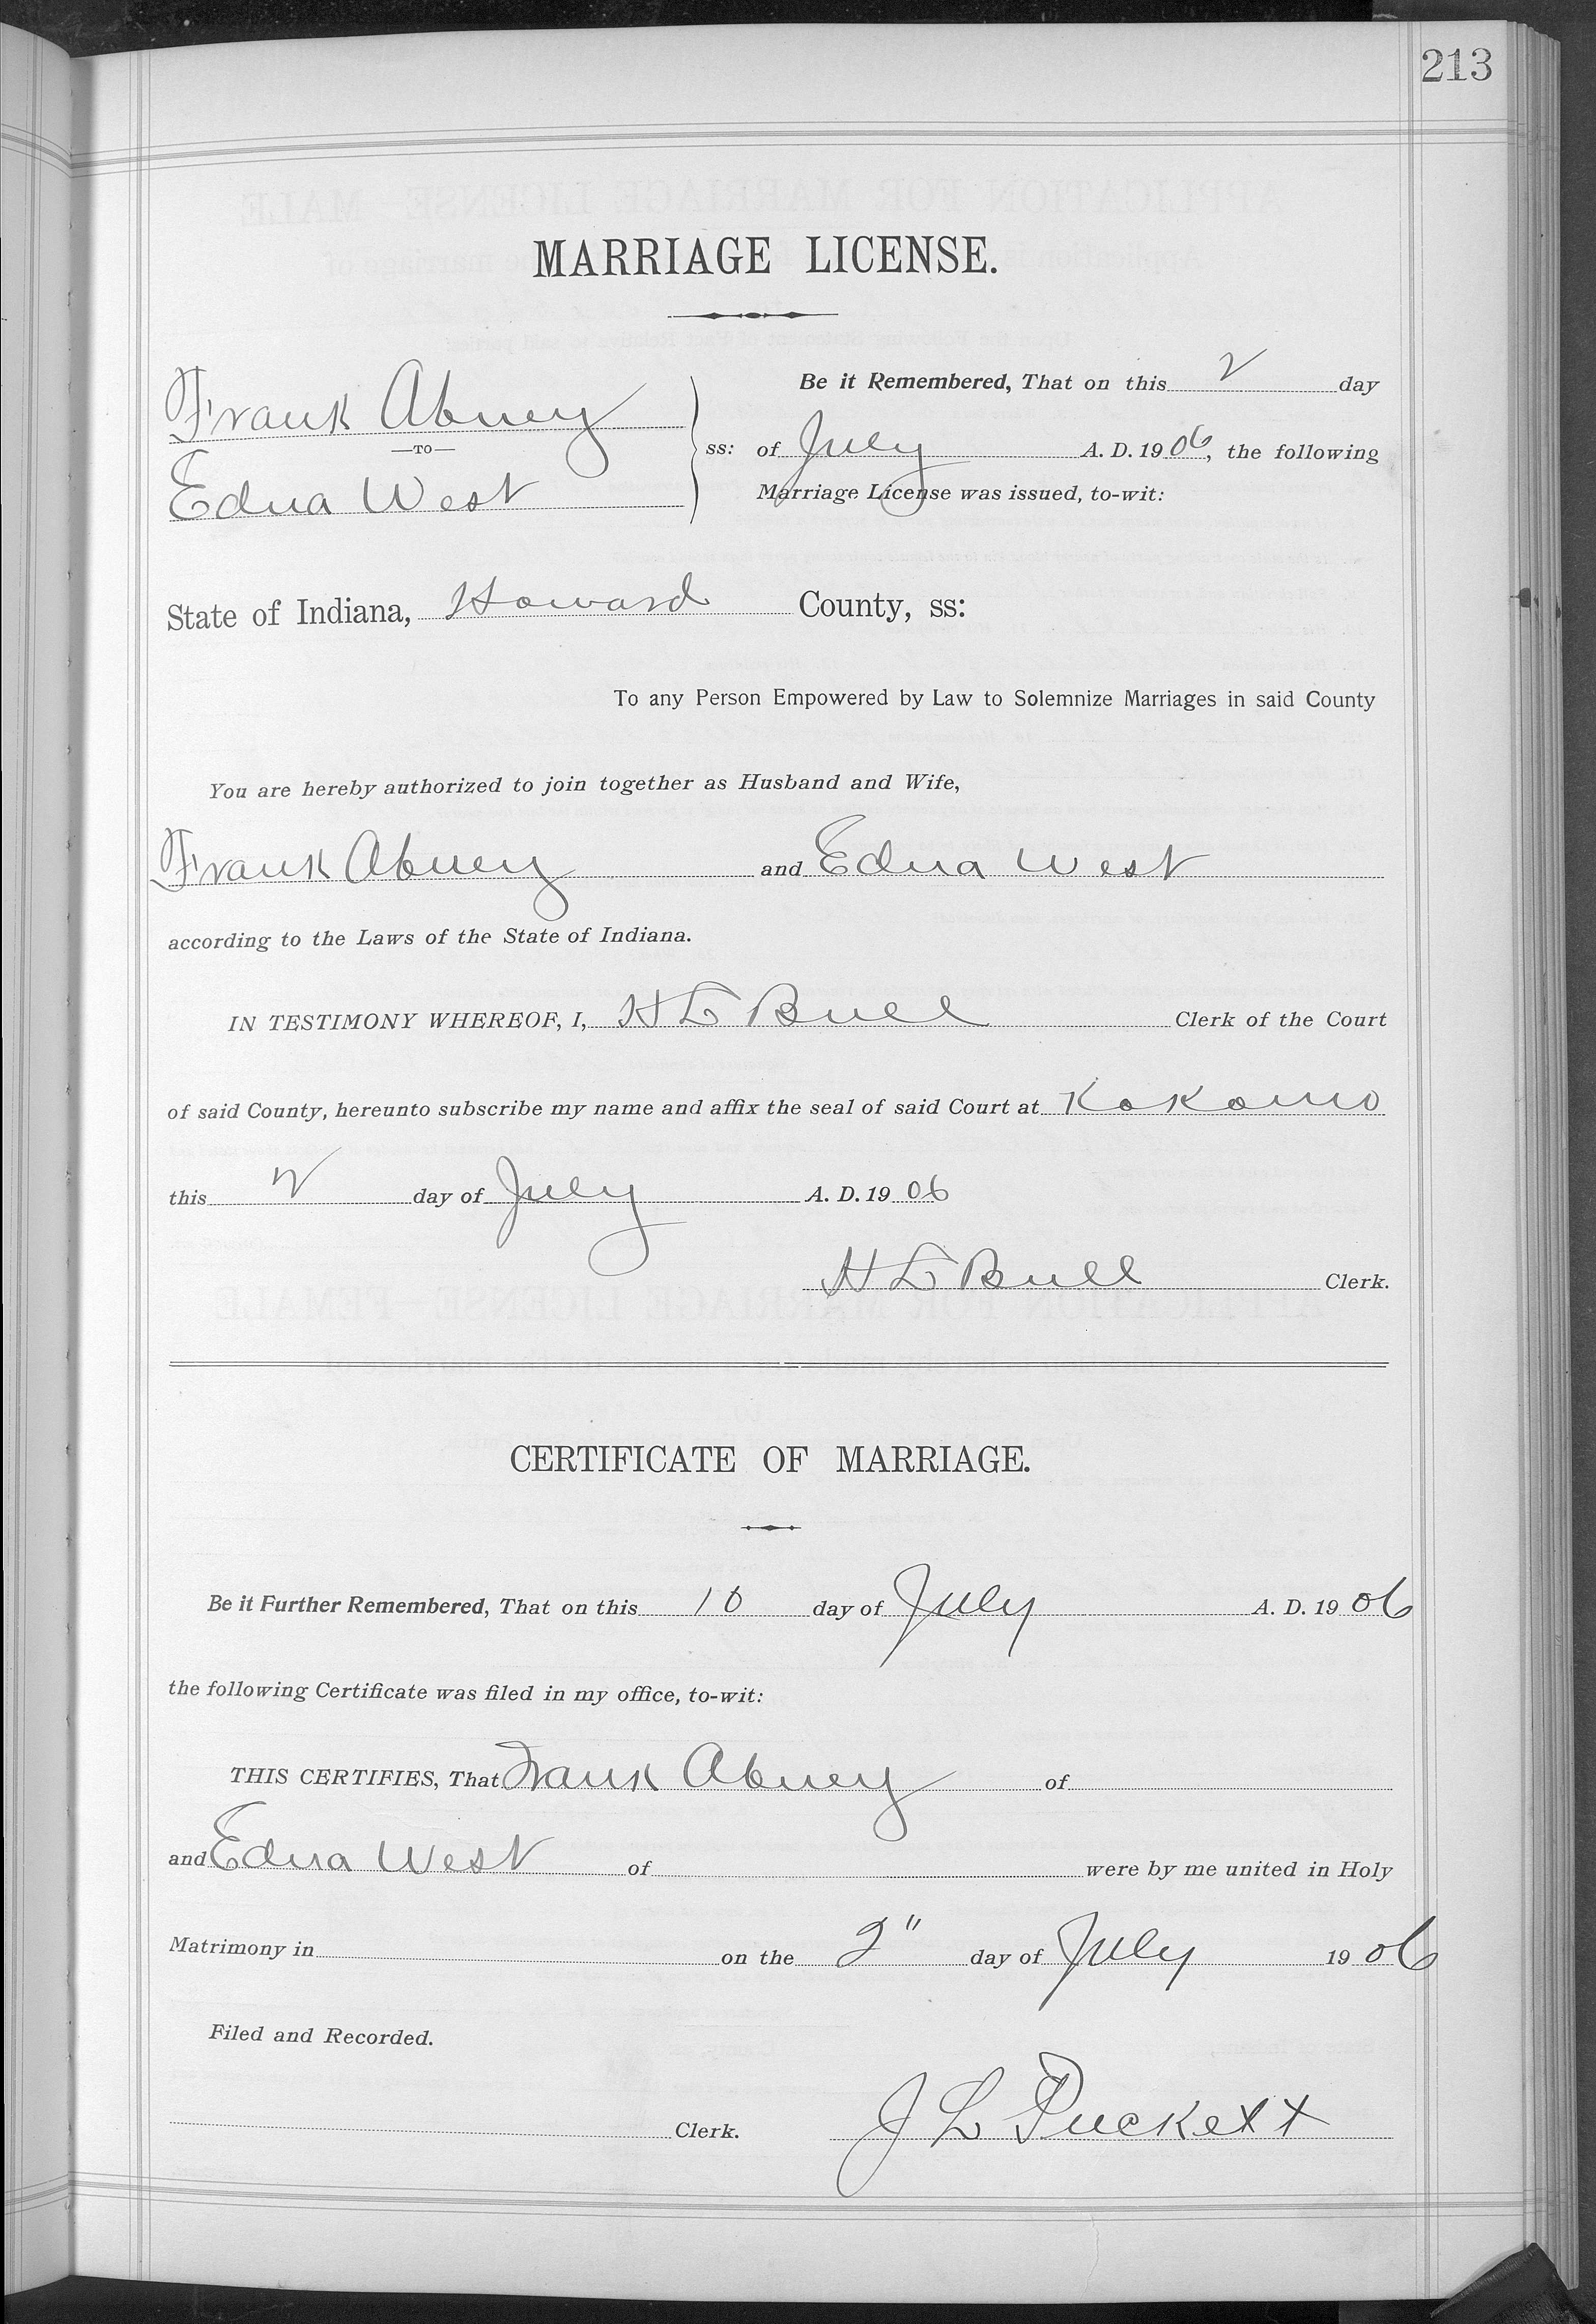 213
MARRIAGE LICENSE.
Frank Abney
—TO—
Edna West
ss:
Be it Remembered, That on this 2 day
of July A. D. 1906, the following
Marriage License was issued, to-wit:
State of Indiana, Howard County, ss:
To any Person Empowered by Law to Solemnize Marriages in said County
You are hereby authorized to join together as Husband and Wife,
Frank Abney and Edna West
according to the Laws of the State of Indiana.
IN TESTIMONY WHEREOF, I, H L Bull Clerk of the Court
of said County, hereunto subscribe my name and affix the seal of said Court at Kokomo
this 2 day of July A. D. 1906
H L Bull Clerk.
CERTIFICATE OF MARRIAGE.
Be it Further Remembered, That on this 10 day of July A. D. 1906
the following Certificate was filed in my office, to-wit:
THIS CERTIFIES, That Frank Abney of
and Edna West of were by me united in Holy
Matrimony in on the 2" day of July 1906
Filed and Recorded.
Clerk. J L Puckett